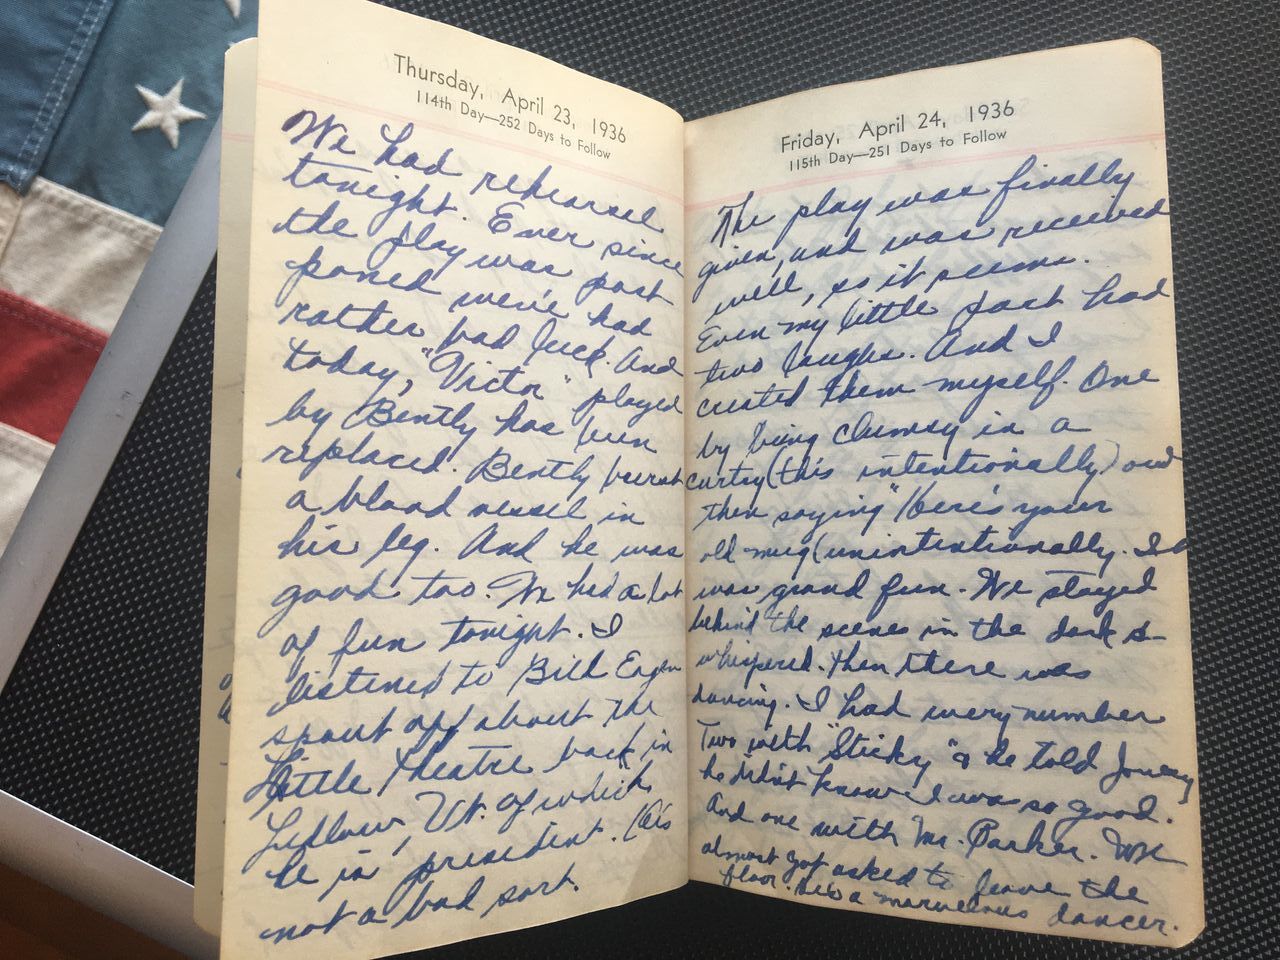 Thursday, April 23, 1936
114th Day—252 Days to Follow
We had rehearsel
tonight. Ever since
the play was post
poned we've had
rather bad luck. And
today, "Victor" played
by Bently has been
replaced. Bently burst
a blood vessel in
his leg. And he was
good too. We had a lot
of fun tonight. I
listened to Bill
spout off about the
Little Theatre back in
Ludlow, Vt. of which
he is president. He's
not a bad sort.
Friday, April 24, 1936
115th Day—251 Days to Follow
The play was finally
given, and was received
well, so it seems.
Even my little part had
two laughs. And I
created them myself. One
by being clumsy in a
curtsy (this intentionally) and
then saying "Here's your
old mug (unintentionally. It
was grand fun. We stayed
behind the scenes in the dark &
whispered. Then there was
dancing. I had every number
Two with "Sticky" & he told
he didn't know I was so good.
And one with Mr. Parker. We
almost got asked to leave the
floor. He's a marvelous dancer.